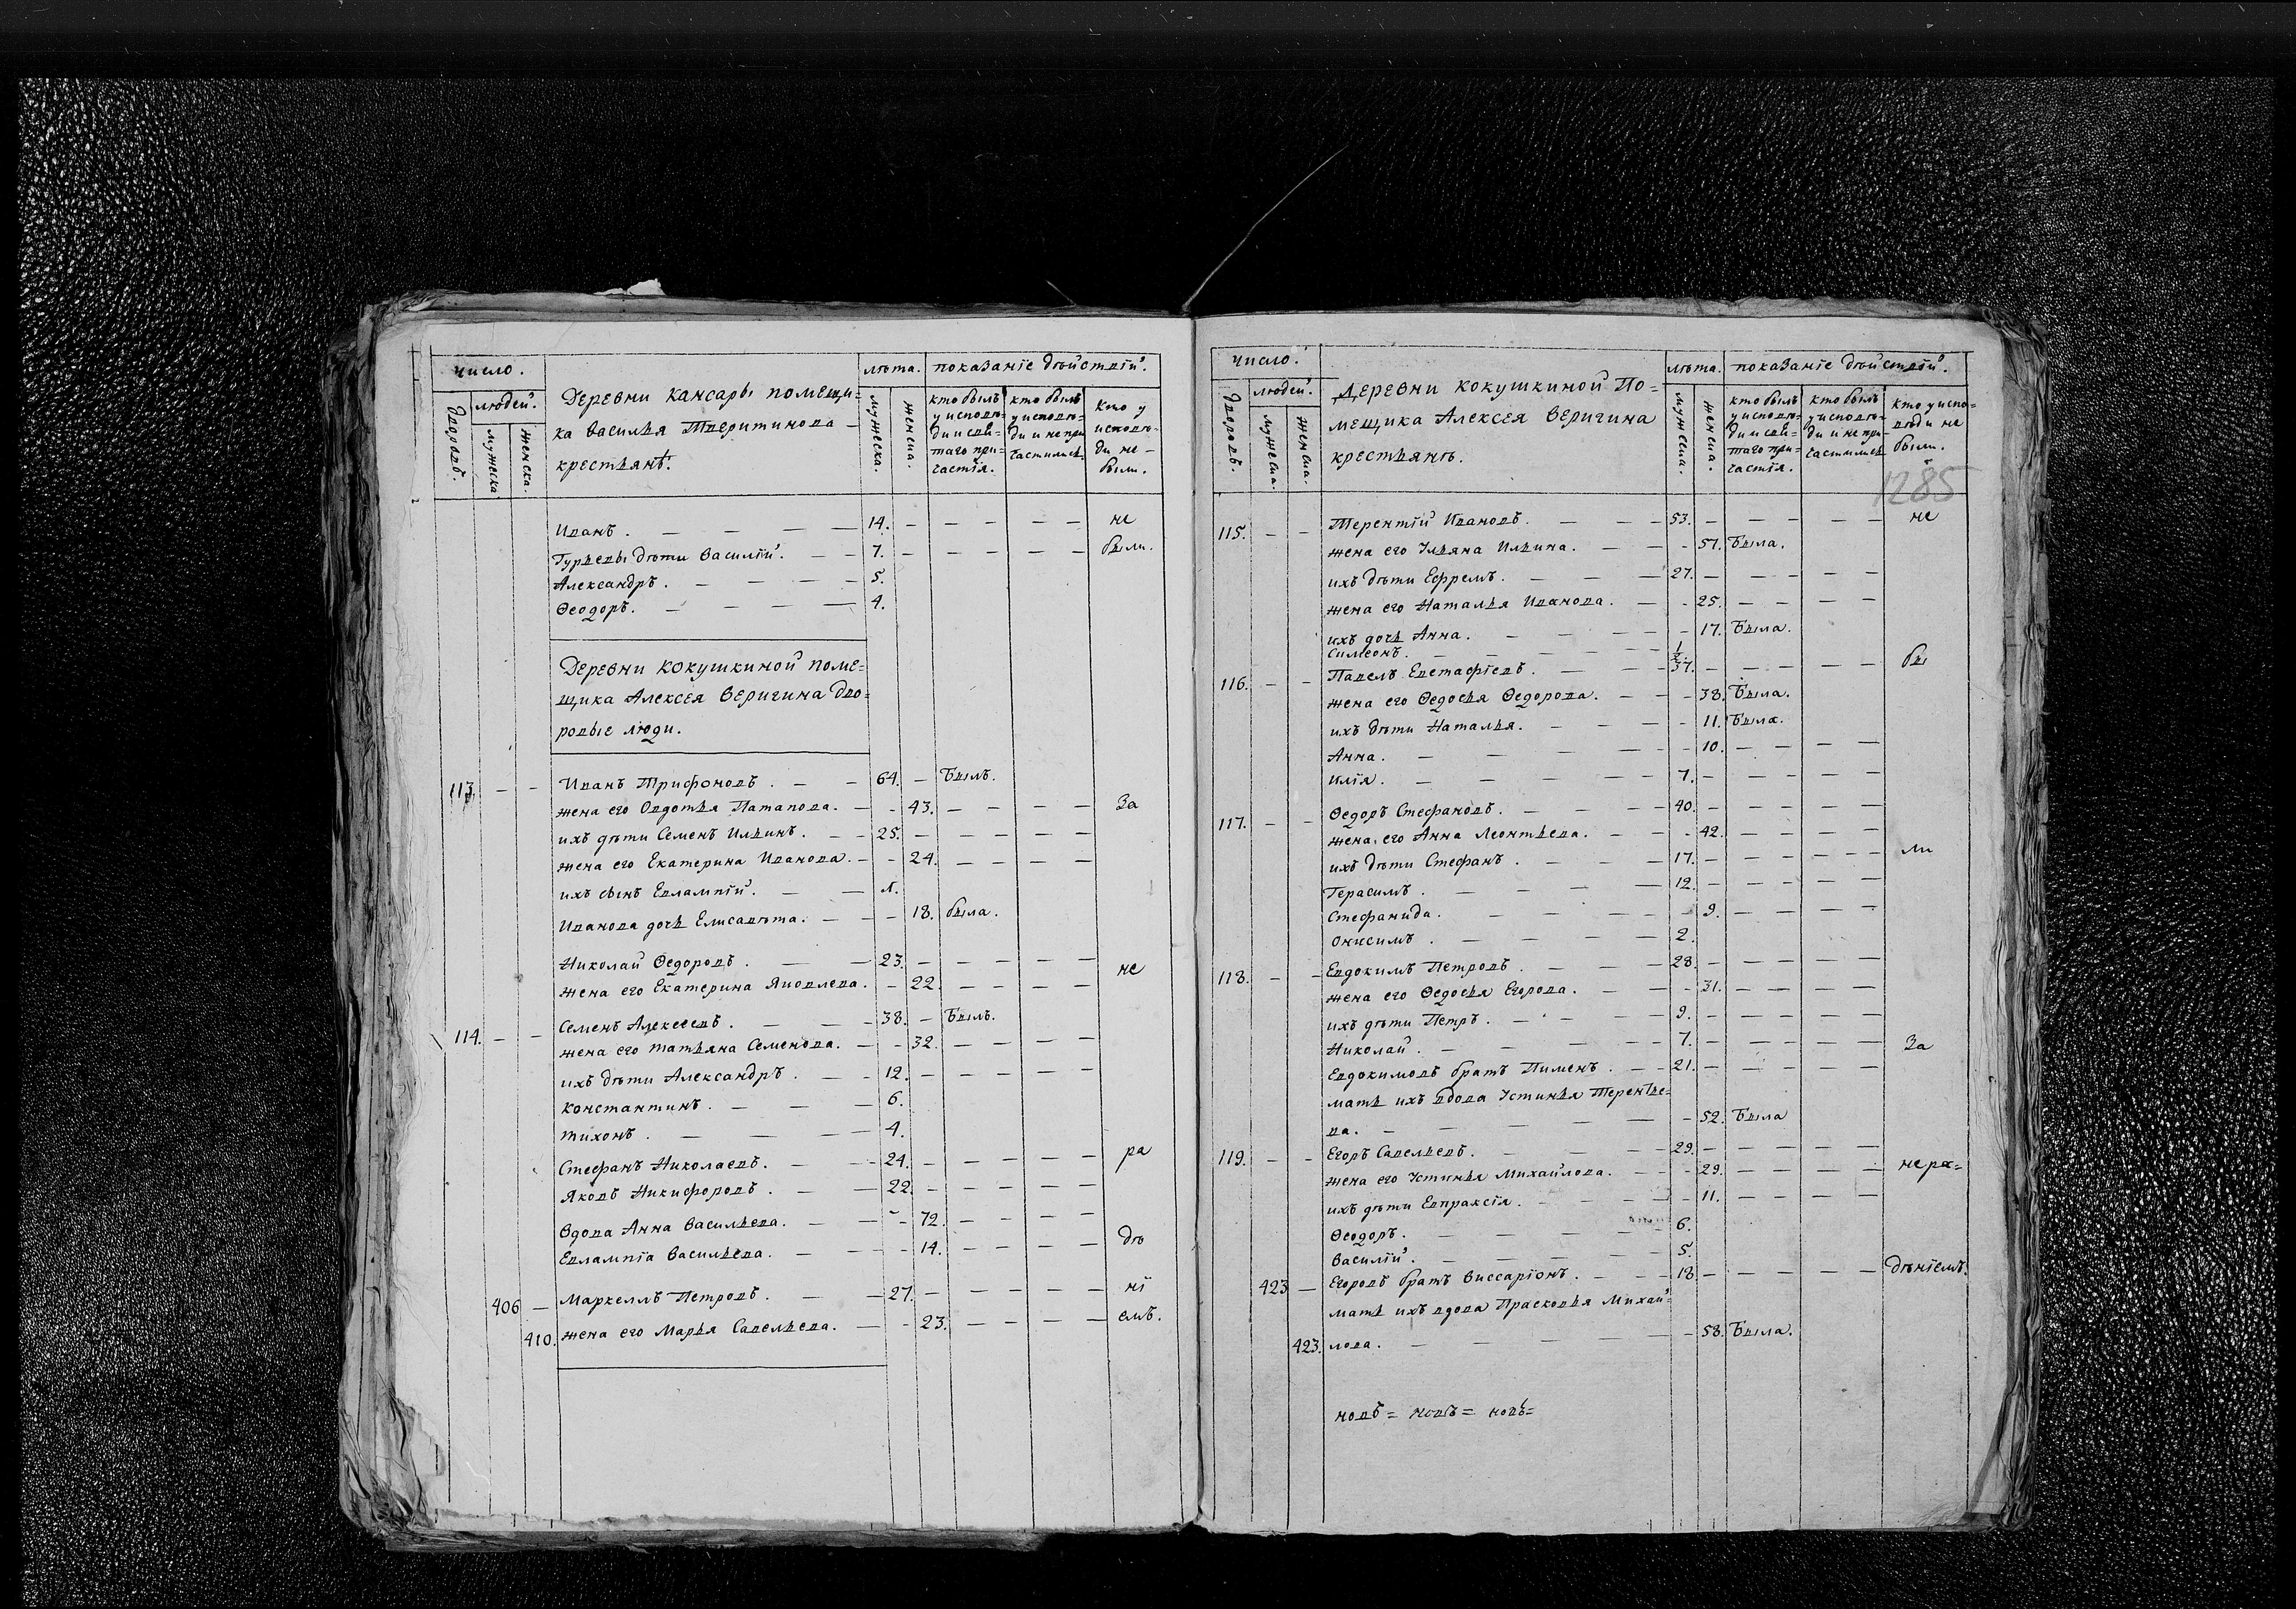 число.
людей.
дворовъ.
мужеска
женска.
Деревни Кансары помещи=
ка Василья Тверитинова
крестьянъ.
лѣта.
мужеска.
женска.
показаніе дѣйствій.
кто былъ
у исповѣ=
ди и свя=
таго при=
частія.
кто былъ
у исповѣ=
ди и не при
частился.
кто у
исповѣ-
ди не
были.
Иванъ. 14. не
Гурьевы дѣти Василій. 7. были.
Александръ. 5.
Ѳеодоръ. 4.
Деревни Кокушкиной поме=
щика Алексея Веригина дво=
ровые люди.
113. Иванъ Трифоновъ. 64. Былъ.
жена его Овдотья Патапова. 43. За
ихъ дѣти Семенъ Ильинъ. 25.
жена его Екатерина Иванова. 24.
ихъ сынъ Евлампій. 1.
Иванова дочь Елисавѣта. 18. была.
Николай Ѳедоровъ. 23.
жена его Екатерина Яковлева. 22. не
114. Семенъ Алексеевъ. 38. Былъ.
жена его Татьяна Семенова. 32.
ихъ дѣти Александръ. 12.
Константинъ. 6.
Тихонъ. 4.
Стефанъ Николаевъ. 24. ра
Яковъ Никифоровъ. 22.
Вдова Анна Васильева. 72.
Евлампіа Васильева. 14. дѣ
406 Маркеллъ Петровъ. 27. ні
410. жена его Марья Савельева. 23. емъ.
число.
людей.
дворовъ.
мужеска.
женска.
Деревни Кокушкиной По=
мещика Алексея Веригина
крестьянъ.
лѣта.
мужеска.
женска.
показаніе дѣйствій.
кто былъ
у исповѣ=
ди и свя=
таго при=
частія.
кто былъ
у исповѣ=
ди и не при-
частился.
кто у испо=
вѣди не
были.
1285
115. Терентій Ивановъ. 53. не
жена его Ульяна Ильина. 57. Была.
ихъ дѣти Ефремъ. 27.
жена его Наталья Иванова. 25.
ихъ дочь Анна. 17. Была.
Симеонъ. 1/2.
116. Павелъ Евстафіевъ. 37. бы
жена его Ѳедосья Ѳедорова. 38. Была.
ихъ дѣти Наталья. 11. Была.
Анна. 10.
Илія. 7.
117. Ѳедоръ Стефановъ. 40.
жена его Анна Леонтьева. 42.
ихъ дѣти Стефанъ. 17. ли
Герасимъ. 12.
Стефанида. 9.
Онисимъ. 2.
118. Евдокимъ Петровъ. 28.
жена его Ѳедосья Егорова. 31.
ихъ дѣти Петръ. 9.
Николай. 7. За
Евдокимовъ братъ Пименъ. 21.
мать ихъ вдова Устинья Терентье=
ва. 52. Была
119. Егоръ Савельевъ. 29.
жена его Устинья Михайлова. 29. нера=
ихъ дѣти Евпраксія. 11.
Ѳеодоръ. 6.
Василій. 5.
423 Егоровъ братъ Виссаріонъ. 18 дѣніемъ.
мать ихъ вдова Прасковья Михай=
423. лова. 58. Была.
новъ= новъ= новъ=